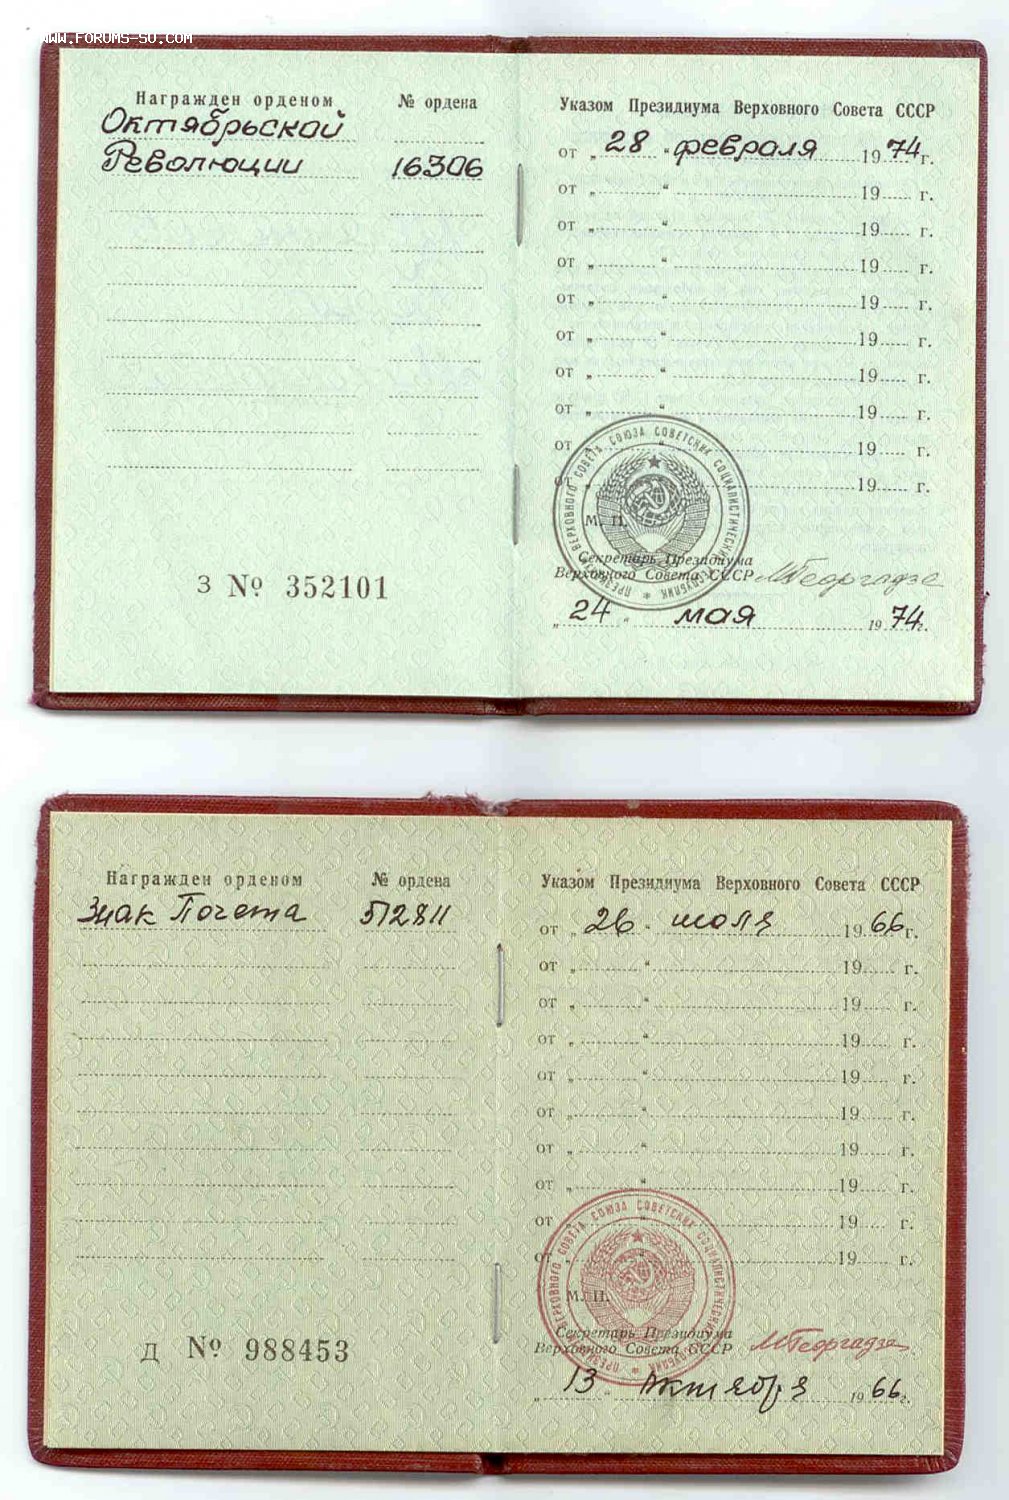 WWW.FORUMS-SU.COM
Награжден орденом № ордена
Октябрьской
Революции 16306
З № 352101
Указом Президиума Верховного Совета СССР
от „ 28 “ февраля 1974 г.
от „ “ 19 г.
от „ “ 19 г.
от „ “ 19 г.
от „ “ 19 г.
от „ “ 19 г.
от „ “ 19 г.
от „ “ 19 г.
от „ “ 19 г.
от „ 19 г.
ПРЕЗИДИУМ ВЕРХОВНОГО СОВЕТА СОЮЗА СОВЕТСКИХ СОЦИАЛИСТИЧЕСКИХ РЕСПУБЛИК
М. П.
Секретарь Президиума
Верховного Совета СССР МГеоргадзе
„ 24 “ мая 1974 г.
Награжден орденом № ордена
Знак Почета 512811
Д № 988453
Указом Президиума Верховного Совета СССР
от „ 26 “ июля 1966 г.
от „ “ 19 г.
от „ “ 19 г.
от „ “ 19 г.
от „ “ 19 г.
от „ “ 19 г.
от „ “ 19 г.
от „ “ 19 г.
от „ “ 19 г.
от „ “ 19 г.
ПРЕЗИДИУМ ВЕРХОВНОГО СОВЕТА СОЮЗА СОВЕТСКИХ СОЦИАЛИСТИЧЕСКИХ РЕСПУБЛИК
М. П.
Секретарь Президиума
Верховного Совета СССР МГеоргадзе
„ 13 “ октября 1966 г.